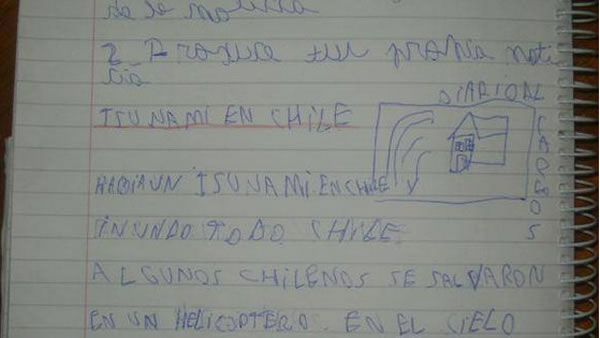 de la noticia
2 Produce tu propia noti
cia
DIARIO AL
TSUNAMI EN CHILE
HABIA UN TSUNAMI EN CHILE Y
INUNDO TODO CHILE
ALGUNOS CHILENOS SE SALVARON
EN UN HELICOPTERO. EN EL CIELO